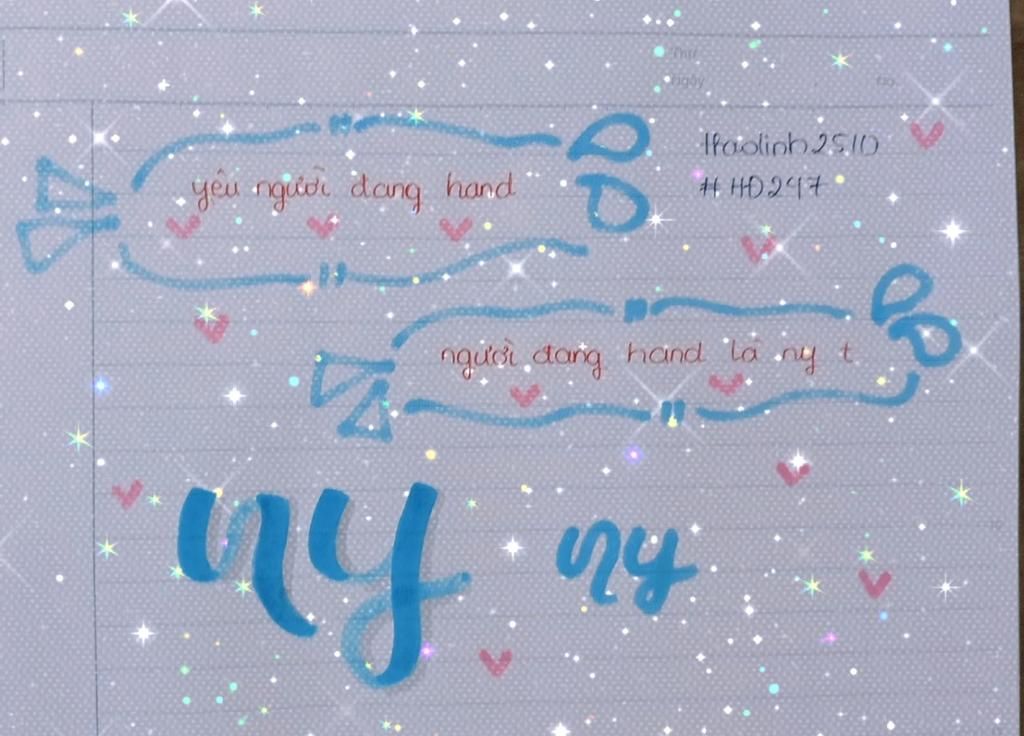 Thứ
Ngày
No.
Haolinh2510
#HD247
yêu người đang hand
người đang hand là ny t
ny ny